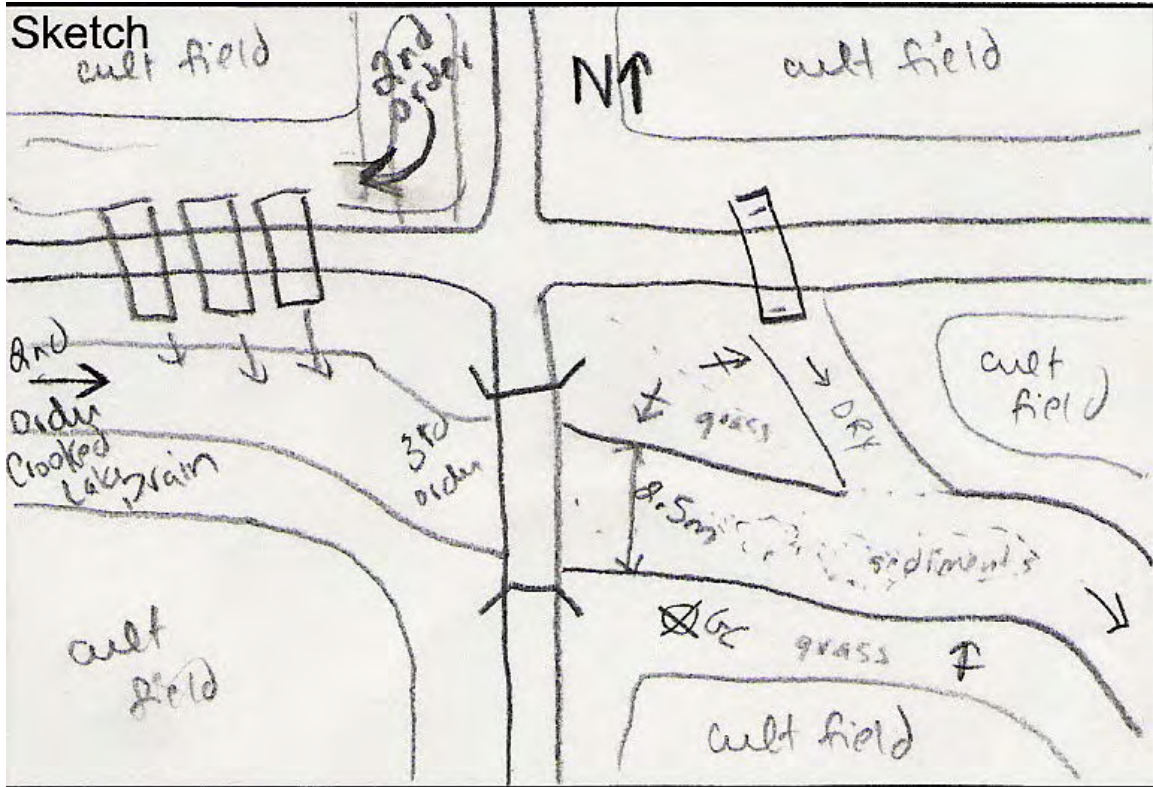 Sketch
cult field
2nd
order
N
cult field
2nd
order
Crooked
Lake Drain
3rd
order
grass
DRY
cult
field
8.5m
sediments
GC
grass
cult
field
cult field